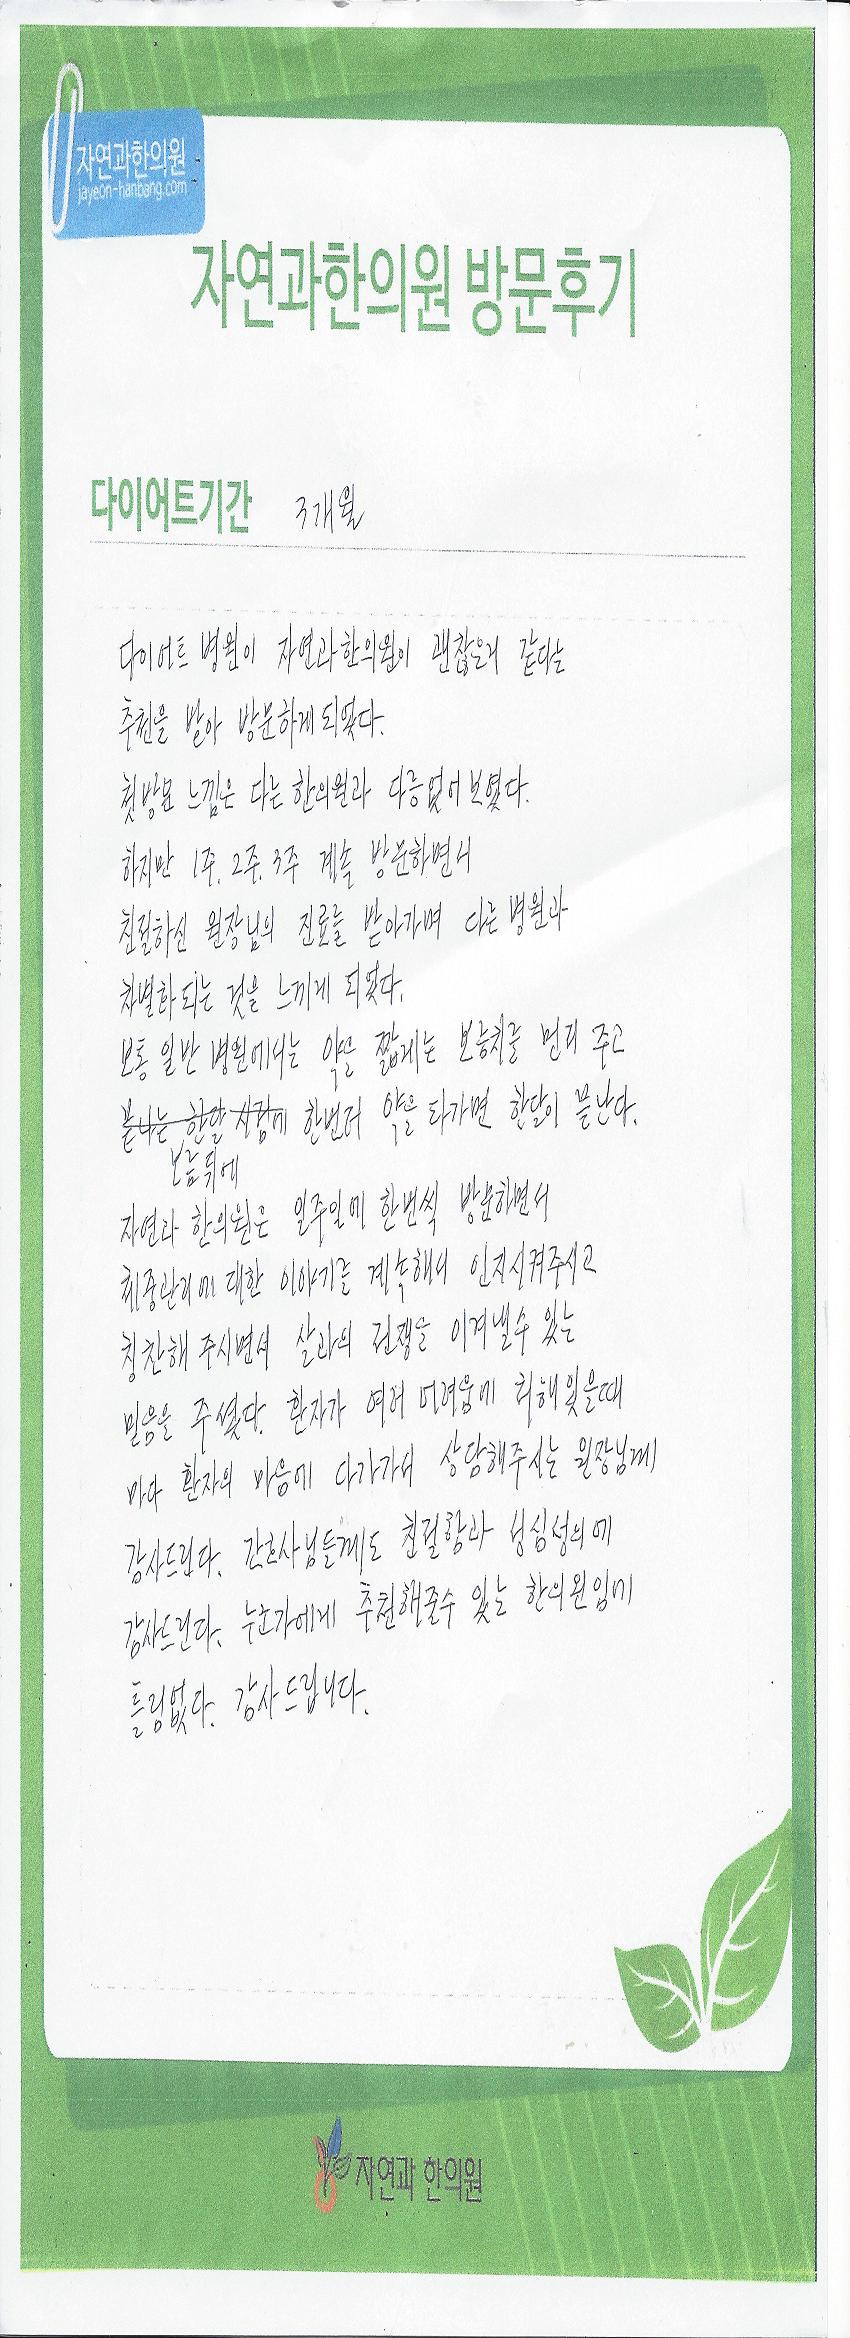 자연과한의원
jayeon-hanbang.com
자연과한의원 방문후기
다이어트기간 3개월
다이어트 병원이 자연과한의원이 괜찮은거 같다는
추천을 받아 방문하게되었다.
첫방문 느낌은 다른 한의원과 다름없어보였다.
하지만 1주, 2주, 3주 계속 방문하면서
친절하신 원장님의 진료를 받아가며 다른 병원과
차별화 되는 것을 느끼게 되었다.
보통 일반 병원에서는 약을 짧게는 보름치를 먼저 주고
끝나는 한달 시점에 한번더 약을 타가면 한달이 끝난다.
보름뒤에
자연과 한의원은 일주일에 한번씩 방문하면서
체중관리에 대한 이야기를 계속해서 인지시켜주시고
칭찬해 주시면서 살과의 전쟁을 이겨낼수 있는
믿음을 주셨다. 환자가 여러 어려움에 처해있을때
마다 환자의 마음에 다가가서 상담해주시는 원장님께
감사드린다. 간호사님들께도 친절함과 성심성의에
감사드린다. 누군가에게 추천해줄수 있는 한의원임에
틀림없다. 감사드립니다.
자연과 한의원